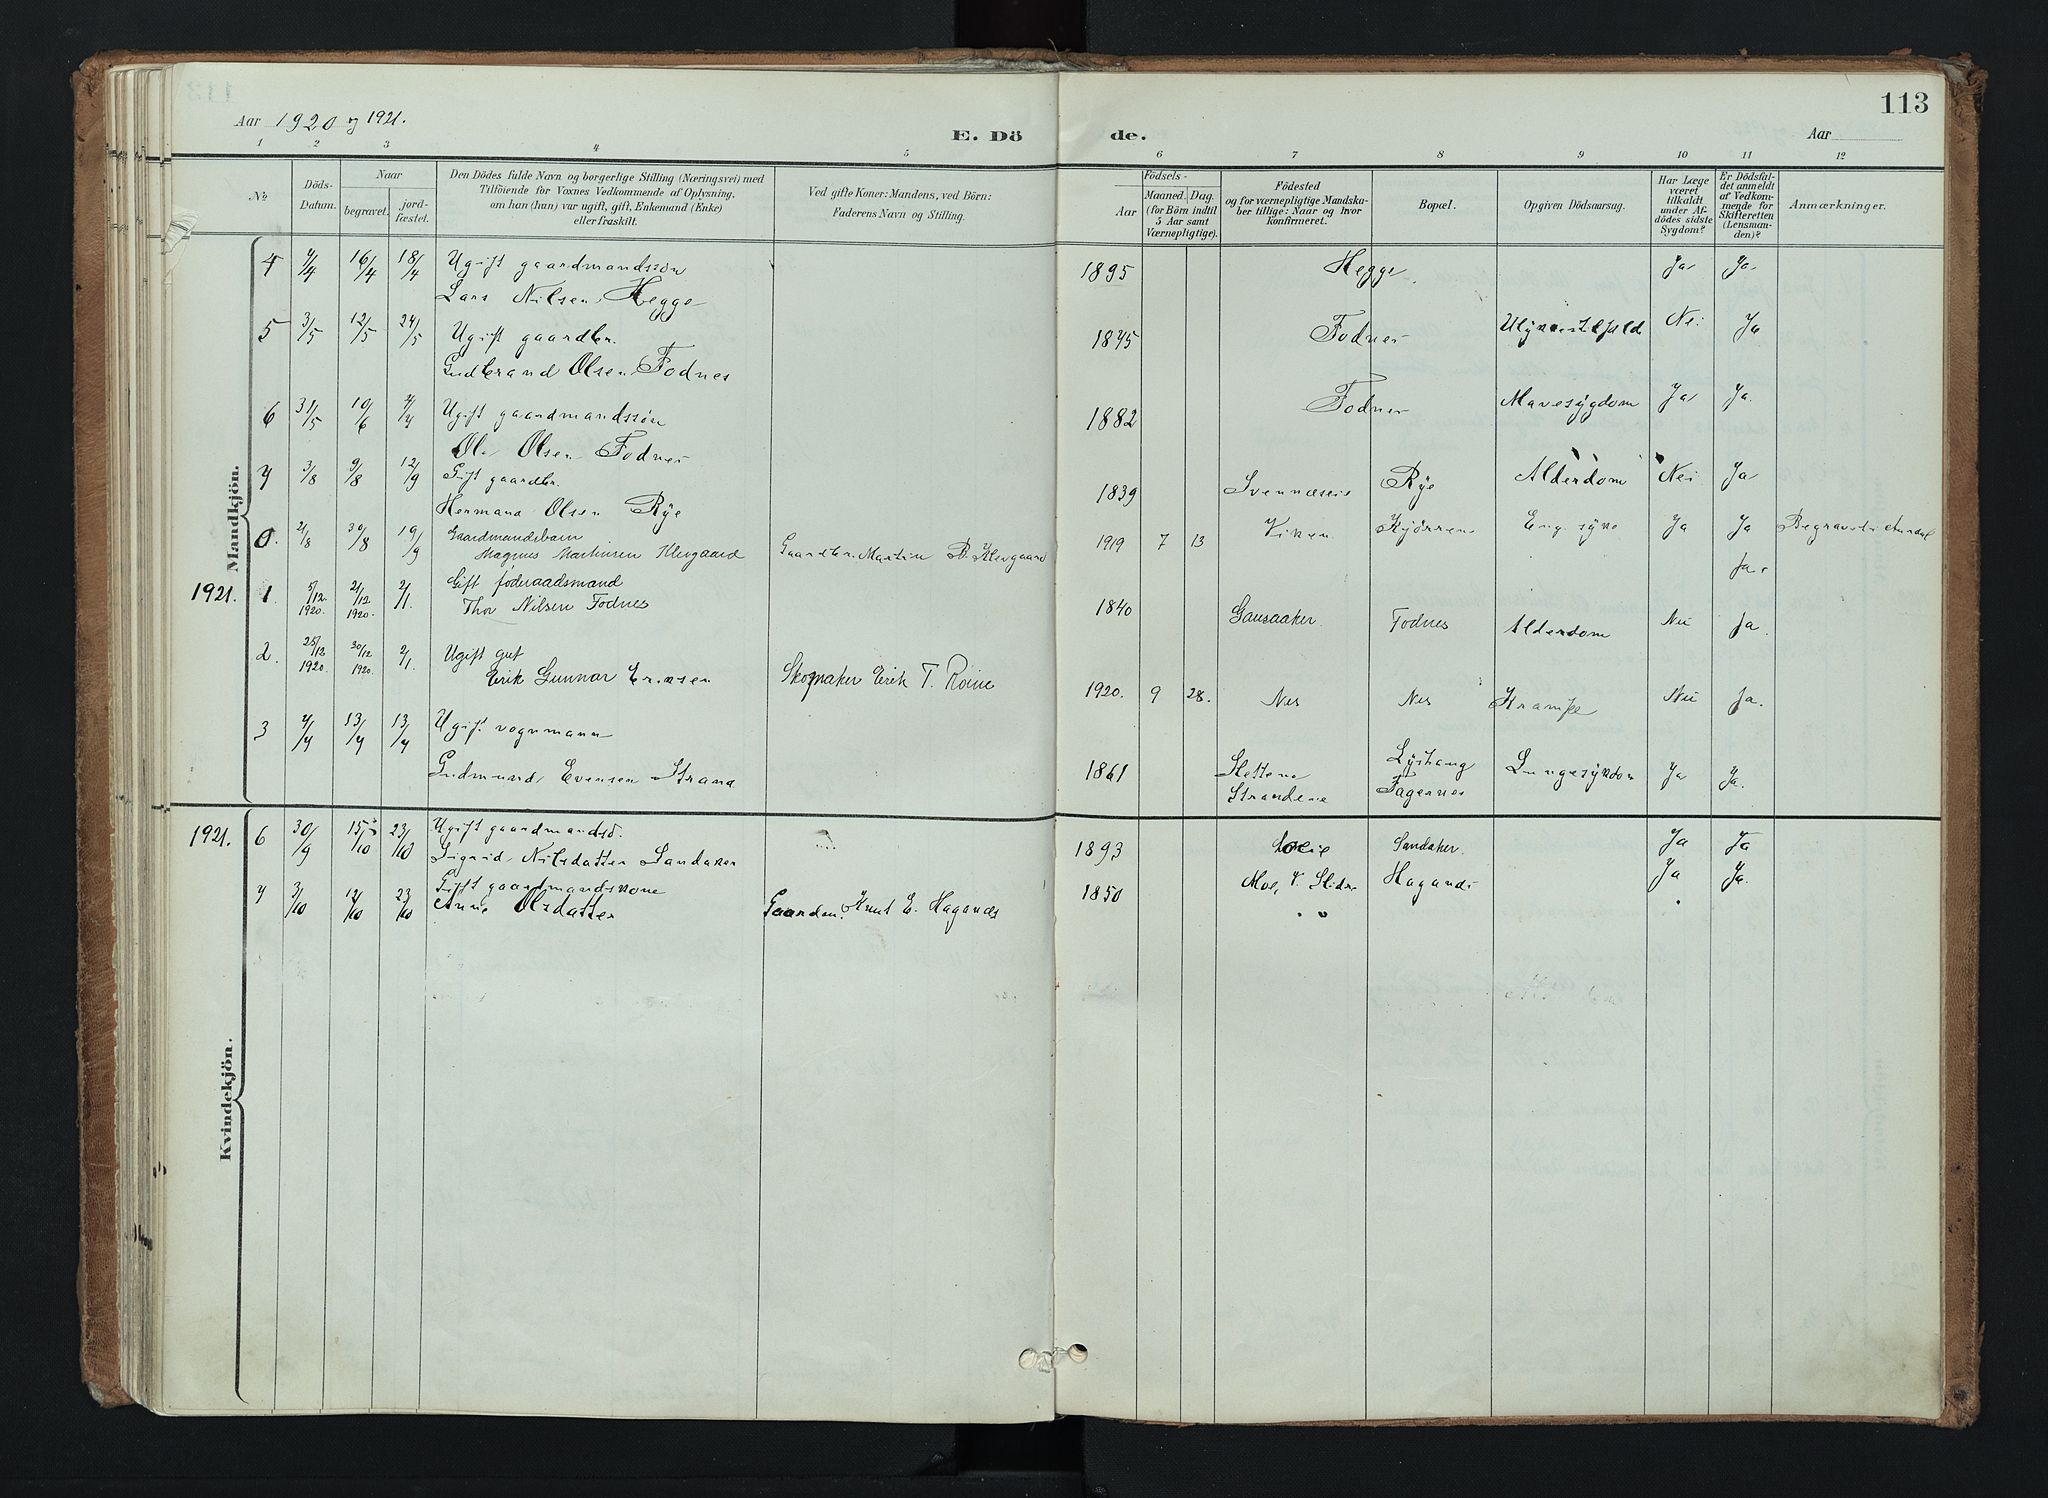 113
Aar 1920 og 1921.
E. Dö de.
Aar
1 2 3 4 5 6 7 8 9 10 11 12
No.
Döds-Datum.
Naar
begravet.
jord-fæstet.
Den Dödes fulde Navn og borgerlige Stilling (Næringsvei) med
Tilföiende for Voxnes Vedkommende af Oplysning,
om han (hun) var ugift, gift, Enkemand (Enke)
eller fraskilt.
Ved gifte Koner: Mandens, ved Börn:
Faderens Navn og Stilling.
Födsels-
Aar
Maaned. Dag.
(for Börn indtil
5 Aar samt
Værnepligtige).
Födested
og for værnepligtige Mandska-
ber tillige: Naar og hvor
konfirmeret.
Bopæl.
Opgiven Dödsaarsag.
Har Læge
været
tilkaldt
under Af-
dödes sidste
Sygdom?
Er Dödsfal-
det anmeldt
af Vedkom-
mende for
Skifteretten
(Lensman-
den)?
Anmærkninger.
Mandkjön.
4 16/4 18/4 Ugift gaardmandssön 1895 Hegge Ja Ja
Lars Nilsen Hegge
5 3/5 12/5 24/5 Ugift gaardbr. 1845 Fodnes Nei Ja
Gudbrand Olsen Fodnes
6 31/5 10/6 Ugift gaardmandssön 1882 Fodnes Mavesygdom Ja Ja
Ole Olsen Fodnes
7 3/8 9/8 12/9 Gift gaardbr. 1839 Svennæseie Rye Alderdom Nei Ja
Hermand Olsen Rye
21/8 30/8 19/9 Gaardmandsbarn
Magnus Martinsen Klevgaard Gaardbr. Martin B. Klevgaard 1919 7 13 Viken Kjörren Eng. syke Ja Ja
Ja.
1921. 1. 5/12 1920. 21/12 1920. 2/1. Gift föderaadsmand
Thor Nilsen Fodnes 1840 Gausaaker Fodnes Alderdom Nei Ja.
2. 25/12 1920. 30/12 1920. 2/1. Ugift gut
Erik Gunnar Eriksen Skomaker Erik T. Roine 1920. 9 28. Nes Nes Krampe Nei Ja.
3 13/4 13/4 Ugift vognmann
Gudmund Evensen Strand 1861 Slettene Lystang Lungesykdom Ja Ja.
Strandene Fagernes
1921. 6 30/9 15/10 23/10 Ugift gaardmandsd.
Sigrid Nilsdatter Sandaker 1893 Sandaker. Ja Ja
7 3/10 12/10 23/10 Gift gaardmandskone Ja Ja.
Anne Olsdatter Gaardm. Knut E. Hagenæs 1850 Moe, V. Slidre
Kvindekjön.